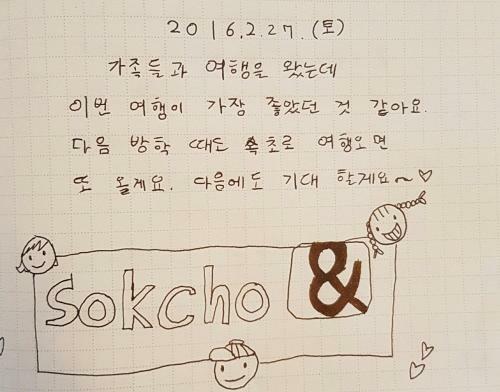 2016.2.27.(토)
가족들과 여행을 왔는데
이번 여행이 가장 좋았던 것 같아요.
다음 방학 때도 속초로 여행오면
또 올게요. 다음에도 기대 할게요~♡
Sokcho &